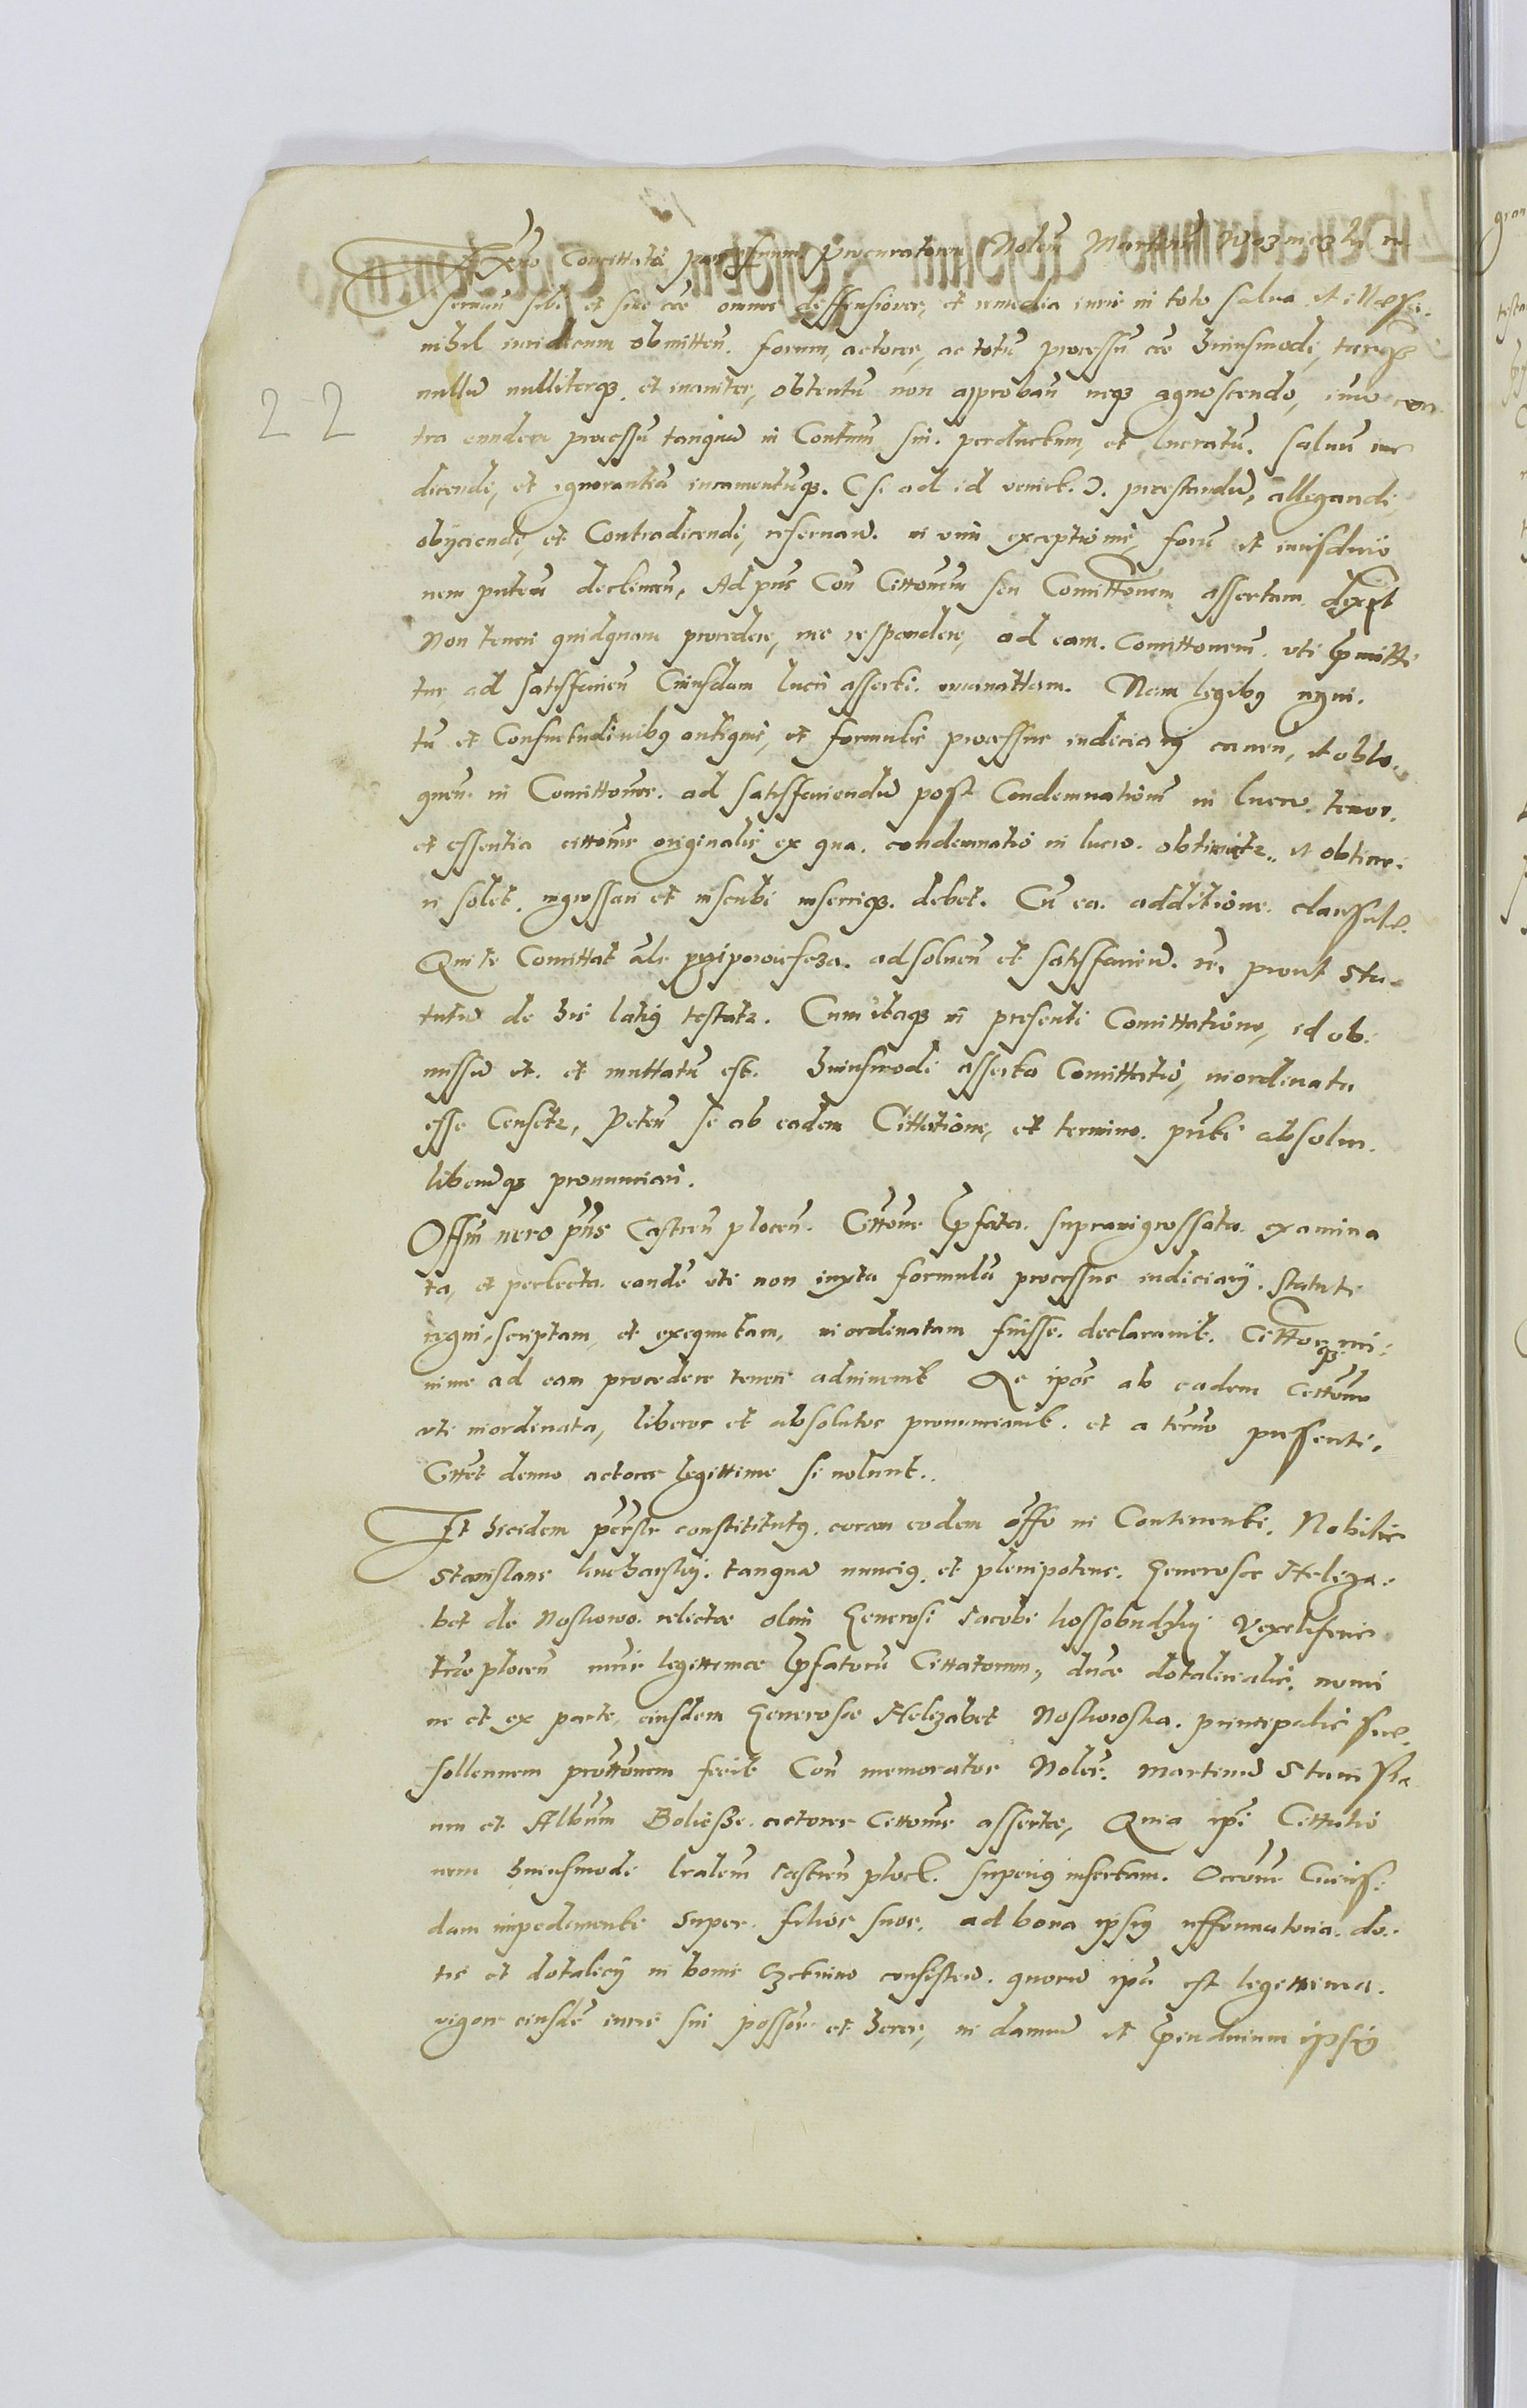 Comittata per suum procuratorem Nobilem Martinum
servan sibi et suae cae omnes deffensiones, et remedia iuris in toto salva et illaesa.
nihil iuridicum obmitten. forum, actores, ac totu processu cae huiusmodi,
nullu nulliterq et inaniter, obtentum non approban neq agnoscendo, imo con
tra eundem processu tanqua in Contum sui. perductum, et lucratu. salvis iur
dicendi, et ignorantia iuramentuq. C si ad id venirt. D. praestandu, allegandi
obyciendi, et Contradicendi, reservan. in vim exceptionis, foru et iurisditio
nem putem declinen, Ad pns Con Cittonem seu Comittonem assertam dixit
Non teneri quidquam procedere, nec respondere, ad eam. Comittonem. uti pmitti
tur ad satisfacien Cuiusdam lucri asserti. emanattam. Nam legibus regni.
tu et Consuetudinibus antiquis, et formulis processus iudiciarij caven, et oblo
quen. in Comittones. ad satisfaciendu post Condemnationem in lucro. tenor.
et essentia cittonis originalis ex qua. condemnatio in lucro. obtinetr.. et obtine.
ri solet. ingrossari et inscribi inseriq. debet. Cu ea. additione. clausulae.
Qui te Comittat ale przipowiesza. ad solven et satisfacien. re. prout Sta
tutu de his latius testatr. Cum itaq in presenti Comittatione, id ob.
missu et. et muttatum est. huiusmodi asserta Comittatio, inordinata
esse Censetr, Peten se ab eadem Cittatione, et termino. pnti absolvi.
liberuq pronunciari.
Offm vero pns Castren plocen. Cittone pfata. supraingrossata. examina
ta, et perlecta. eande uti non iuxta formula processus iudiciarij. statuti
regni, scriptam, et exequutam, inordinatam fuisse. declaravit. Cittosq mi.
nime ad eam procedere teneri adinvenit Ac ipos ab eadem Cittone
uti inordinata, liberos et absolutos pronunciavit. et a termo presenti.
Cittet denuo actores legittime si volunt..
Et hicidem persr constitutus. coram eodem offo in Continenti. Nobilis
Stanislaus tanqua nuncius. et plenipotens. Generosae Heliza.
bet de Noskowo. relictae olim Generosi Jacobi kossobudzky Vexeliferi
trae plocen mris legittimae pfatorum Cittatorum, duae dotalicialis. nomi
ne et ex parte, eiusdem Generosae Helizabet Noskowska. principalis suae.
sollennem prottonem fecit Con memoratos Nobles. Martinu Stanisla
um et Album Boliesze. actores Cittonis assertae, Quia ipi Cittatio
nem huiusmodi lralem Castren plock. superius insertam. Occone Cuius.
dam impedimenti super. filios suos. ad bona ipsius refformatoria. do.
tis et dotalicij in bonis consisten. quoru ipa est legittima.
vigore eiusde iuris sui posses et heres, in damnu et piudicium ipsius
22